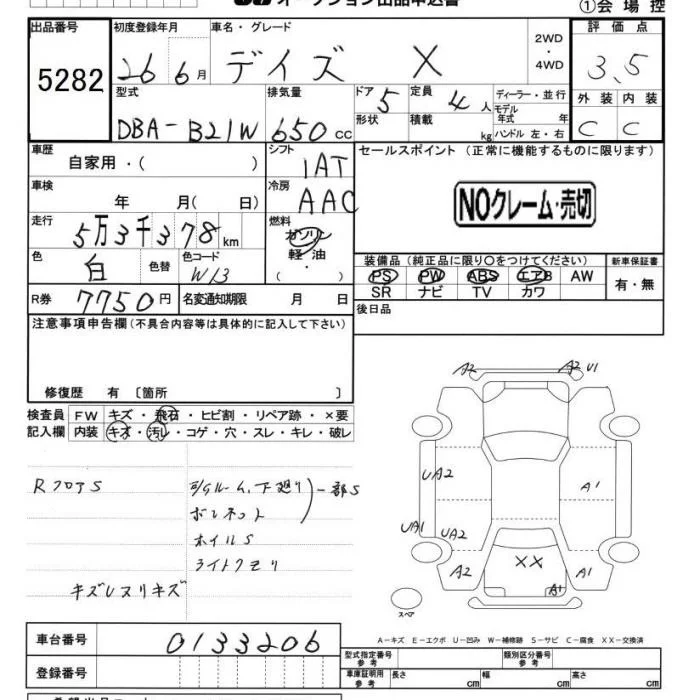 オークション出品申込書
①会場控
出品番号 初度登録年月 車名・グレード 2WD ・ 4WD 評価点
5282 26 6月 デイズ X 3.5
型式 排気量 ドア 5 定員 4人 ディーラー・並行 外装 内装
DBA-B21W 650cc 形状 積載 kg モデル年式 年 C C
ハンドル 左・右
車歴 自家用・( ) シフト IAT セールスポイント (正常に機能するものに限ります)
車検 年 月( 日) 冷房 AAC NOクレーム・売切
走行 5万3千378km 燃料 ガソリン
軽油
・
( )
色 白 色替 色コード W13 装備品 (純正品に限り○をつけてください) 新車保証書
PS PW ABS エアB AW 有・無
SR ナビ TV カワ
R券 7750円 名変通知期限 月 日 後日品
注意事項申告欄 (不具合内容等は具体的に記入して下さい)
修復歴 有 〔箇所 〕
検査員 FW キズ・飛石・ヒビ割・リペア跡・×要
記入欄 内装 キズ・汚レ・コゲ・穴・スレ・キレ・破レ
RフロアS
ルーム、下廻り 一部S
ボンネット
ホイルS
ライトクモリ
キズレヌリキズ
A2 A2 U1
UA2 A1
UA1 UA2
A2 XX A1 A1
スペア
A-キズ E-エクボ U-凹み W-補修跡 S-サビ C-腐食 XX-交換済
車台番号 0133206
登録番号
型式指定番号 参考 類別区分番号 参考
車庫証明用 参考 長さ cm 幅 cm 高さ cm